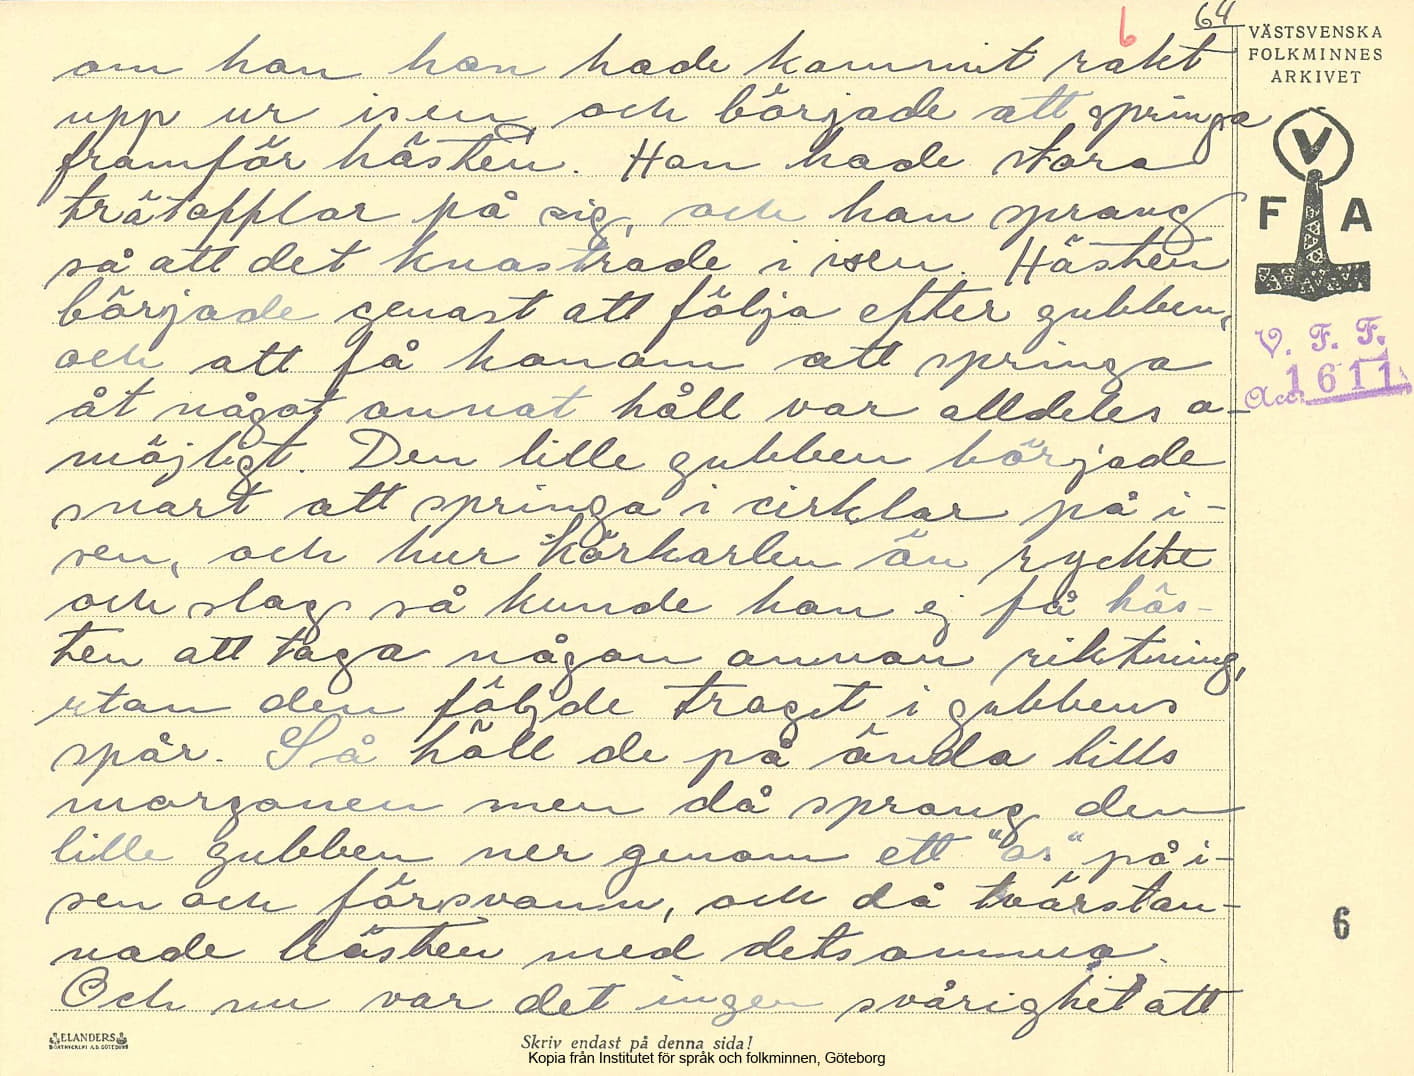 6
64
om han han hade kommit rakt
upp ur isen och började att springa
framför hästen. Han hade stora
trätofflor på sig, och han sprang
så att det knastrade i isen. Hästen
började genast att följa efter gubben,
och att få honom att springa
åt något annat håll var alldeles o-
möjligt. Den lille gubben började
snart att springa i cirklar på i-
sen, och hur körkarlen än ryckte
och slog så kunde han ej få häs-
ten att taga någon annan riktning,
utan den följde troget i gubbens
spår. Så höll de på ända tills
morgonen men då sprang den
lille gubben ner genom ett "os" på i-
sen och försvann, och då tvärstan-
nade hästen med detsamma.
Och nu var det ingen svårighet att
VÄSTSVENSKA
FOLKMINNES
ARKIVET
V
F A
V. F. F.
Acc. 1611
6
ELANDERS
BOKTRYCKERI A.B. GÖTEBORG
Skriv endast på denna sida!
Kopia från Institutet för språk och folkminnen, Göteborg